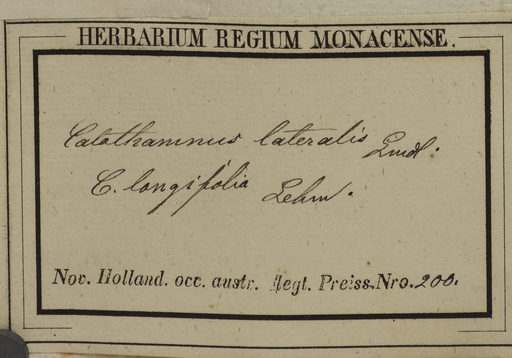 HERBARIUM REGIUM MONACENSE.
Calothamnus lateralis Lindl.
C. longifolia Lehm.
Nov. Holland. occ. austr. legt. Preiss. Nro. 200.